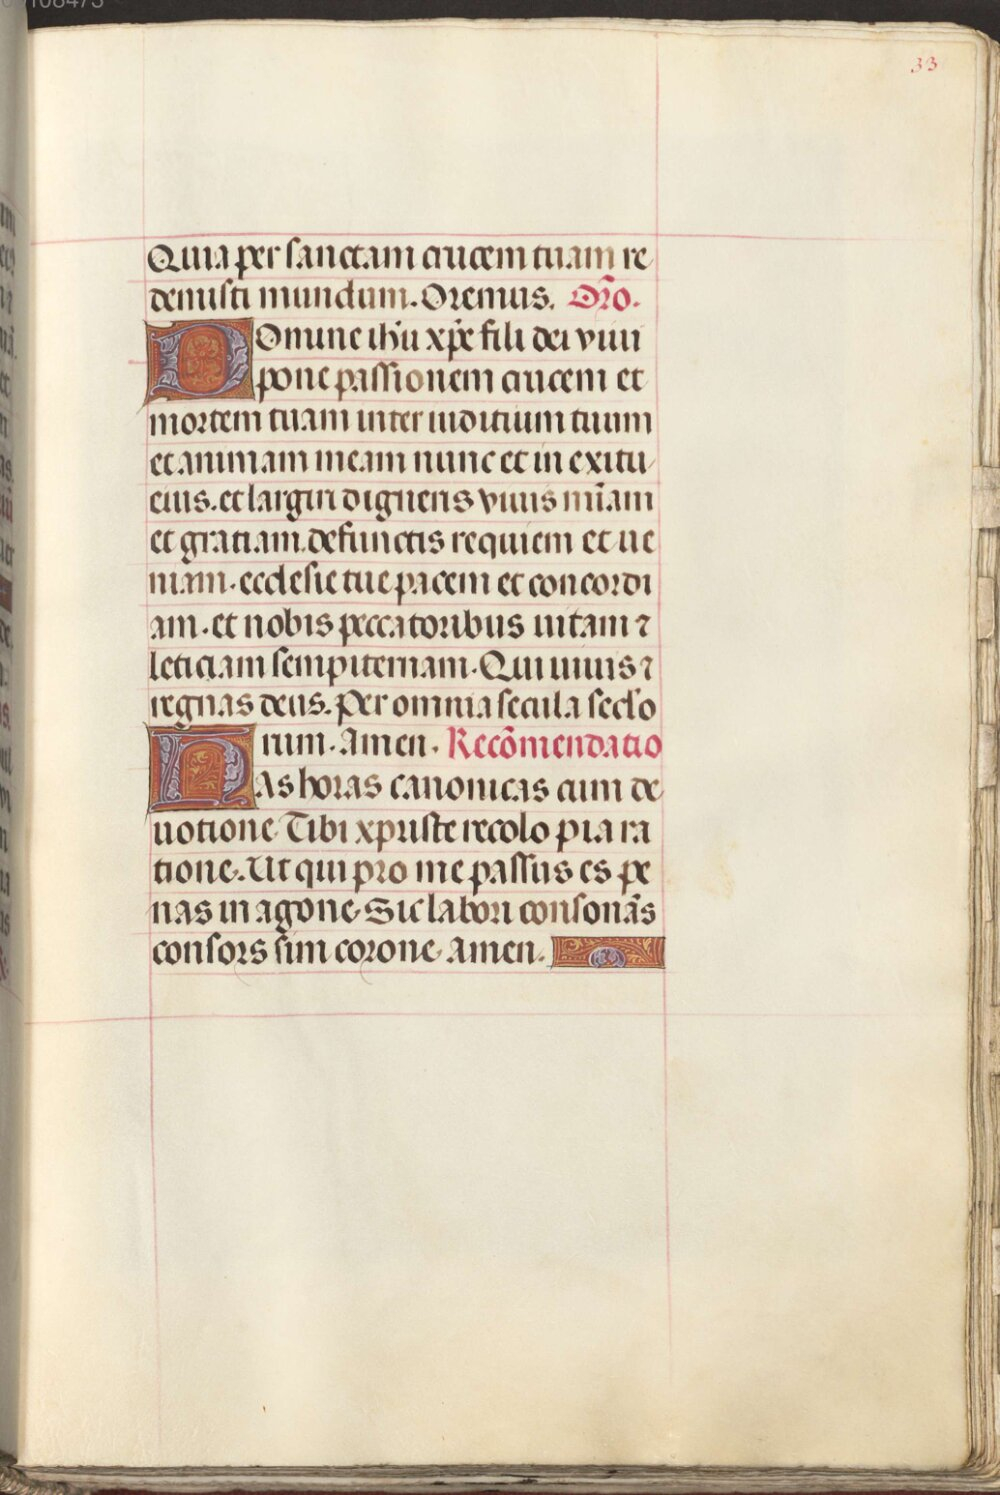 33
Quia per sanctam crucem tuam re
demisti mundum. Oremus. Or̃o.
Domine ihũ xp̃e fili dei viui
pone passionem crucem et
mortem tuam inter iuditium tuum
et animam meam nunc et in exitu
eius. et largiri digneris viuis mĩam
et gratiam. defunctis requiem et ue
niam. ecclesie tue pacem et concordi
am. et nobis peccatoribus uitam ⁊
leticiam sempiternam. Qui uiuis ⁊
regnas deus. Per omnia secula seclo
rum. Amen. Recõmendatio
Has horas canonicas cum de
uotione Tibi xpriste recolo pia ra
tione. Ut qui pro me passus es pe
nas in agone Sic labori consonãs
consors sim corone Amen.